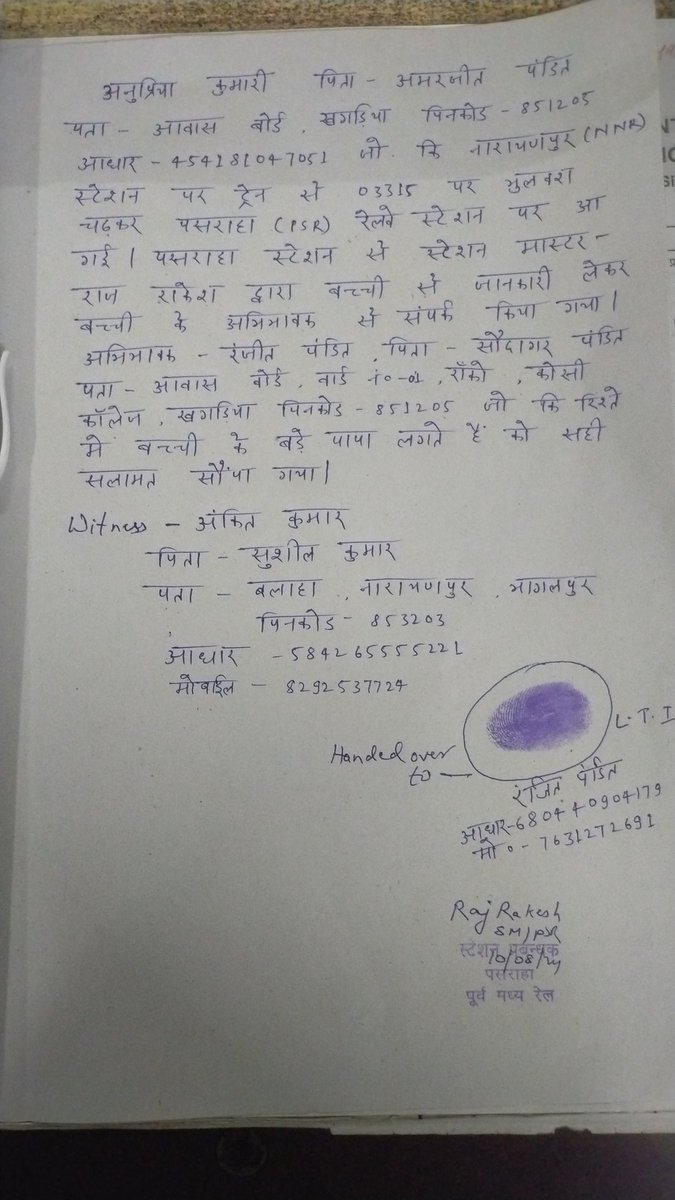 अनुप्रिया कुमारी पिता - अमरजीत पंडित
पता - आवास बोर्ड, खगड़िया पिनकोड - 851205
आधार - 454181047051 जो कि नारायणपुर (NNR)
स्टेशन पर ट्रेन से 03315 पर भुलवश
चढ़कर पसराहा (PSR) रेलवे स्टेशन पर आ
गई। पसराहा स्टेशन से स्टेशन मास्टर -
राज राकेश द्वारा बच्ची से जानकारी लेकर
बच्ची के अभिभावक से संपर्क किया गया।
अभिभावक - रंजीत पंडित, पिता - सौदागर पंडित
पता - आवास बोर्ड, वार्ड नं०-01, राँको, कोसी
कॉलेज, खगड़िया पिनकोड - 851205 जो कि रिश्ते
मे बच्ची के बड़े पापा लगते हैं को सही
सलामत सौंपा गया।
Witness - अंकित कुमार
पिता - सुशील कुमार
पता - बलाहा, नारायणपुर, भागलपुर
पिनकोड - 853203
आधार - 584265555221
मोबाईल - 8292537724
L.T.I
Handed over
to -
रंजित पंडित
आधार - 680440904179
मो० - 7631272691
Raj Rakesh
SM/PSR
स्टेशन प्रबन्धक
10/08/24
पसराहा
पूर्व मध्य रेल